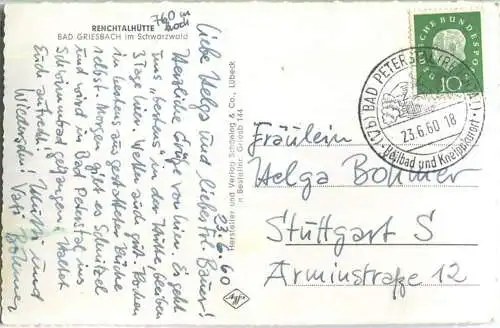 RENCHTALHÜTTE
BAD GRIESBACH im Schwarzwald
760 m
hoch
23.6.60
Liebe Helga und liebes Frl. Bauer!
Herzliche Grüße von hier. Es geht
uns bestens in der Hütte, bleiben
3 Tage hier. Wetter auch gut. Kochen
in bestens ausgestatteter Küche
selbst. Morgen gibt es Schnitzel
und wird in Bad Peterstal ins
Schwimmbad gegangen. Haltet
Euch aufrecht! Mutti und
Wiedersehn! Vati Böhmer
Hersteller und Verlag Schöning & Co., Lübeck
n Bestellnr. Griesb 144
Agfa
DEUTSCHE BUNDESPOST
10
(17b) BAD PETERSTAL (RENCHTAL)
23.6.60-18
Heilbad und Kneippkurort
Fräulein
Helga Böhmer
Stuttgart S
Arminstraße 12